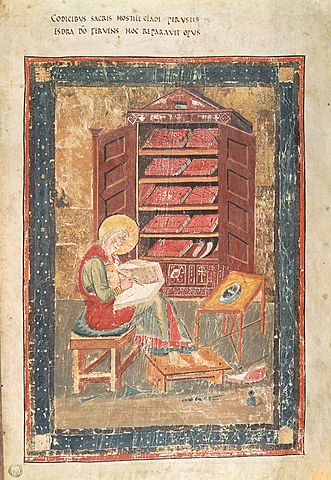 CODICIBVS SACRIS HOSTILI CLADE PERVSTIS
ESDRA DO FERVENS HOC REPARAVIT OPVS